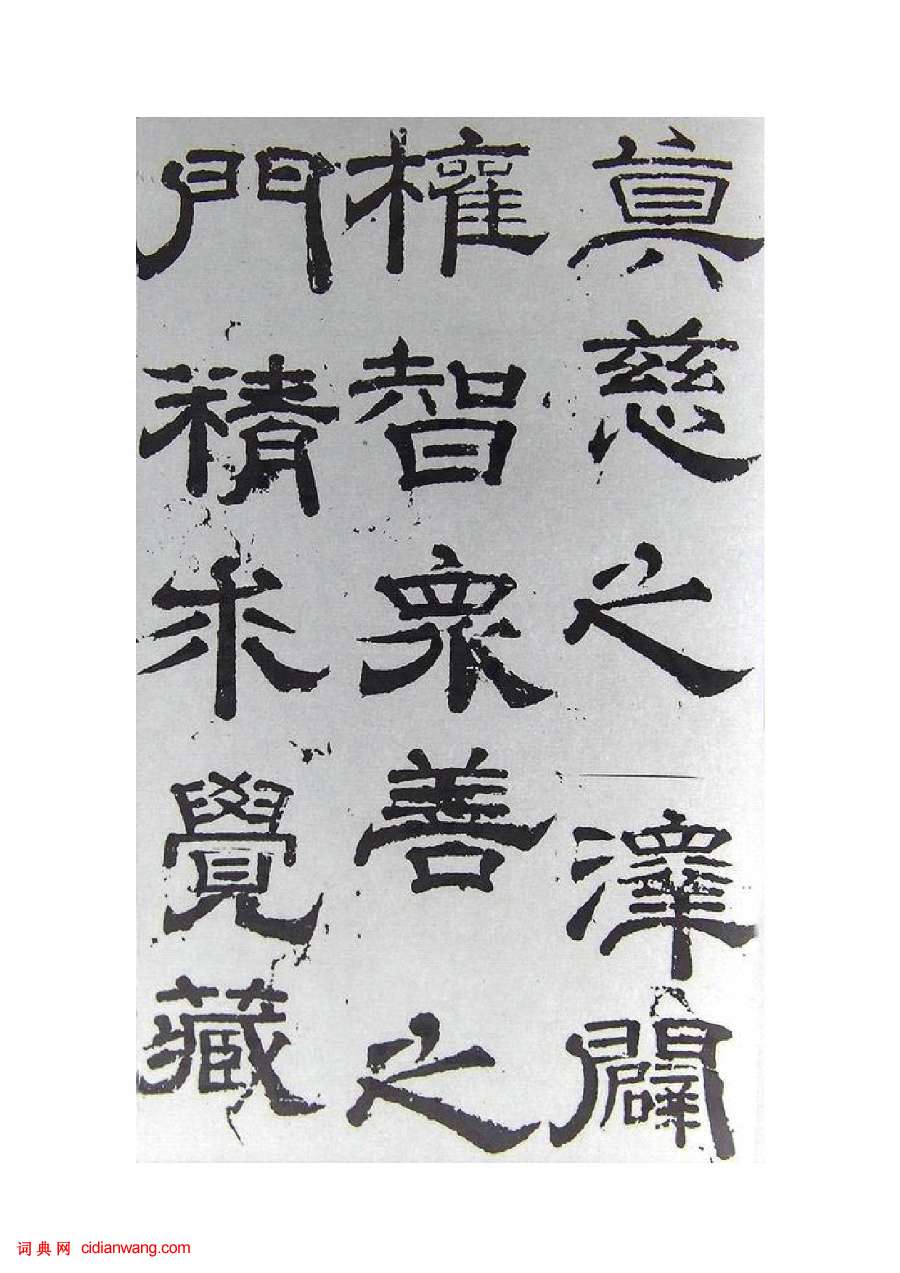 真慈之澤闢
權智衆善之
門精求覺藏
词典网 cidianwang.com